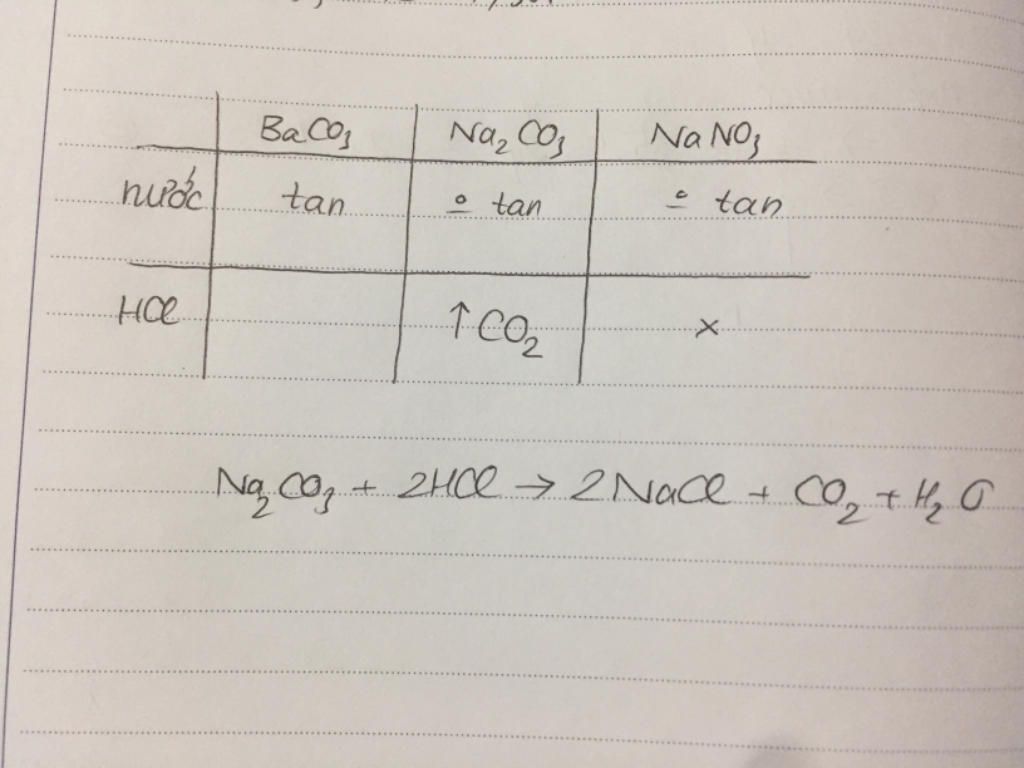 BaCO₃ Na₂CO₃ NaNO₃
nước tan o̲ tan o̲ tan
HCl ↑CO₂ ×
Na₂CO₃ + 2HCl → 2NaCl + CO₂ + H₂O